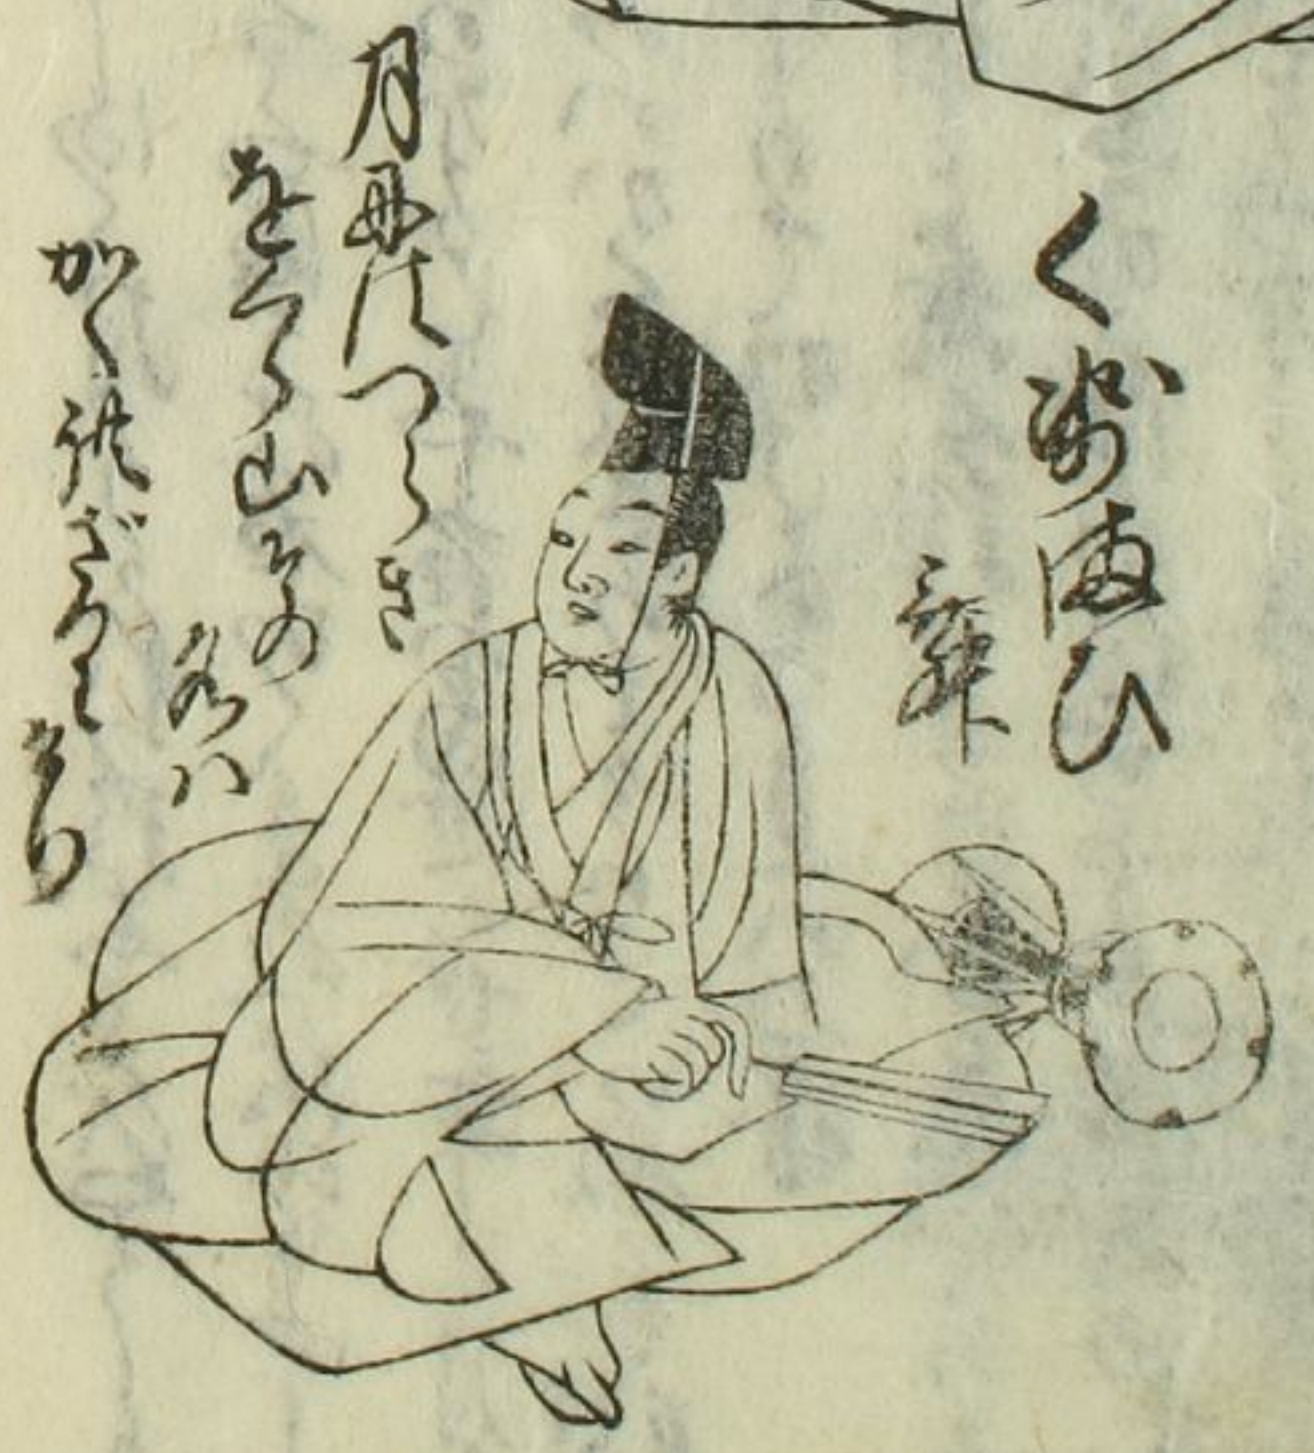 くせまひ
月にはつらき
をくら山その
名ハ
かくれざりけり